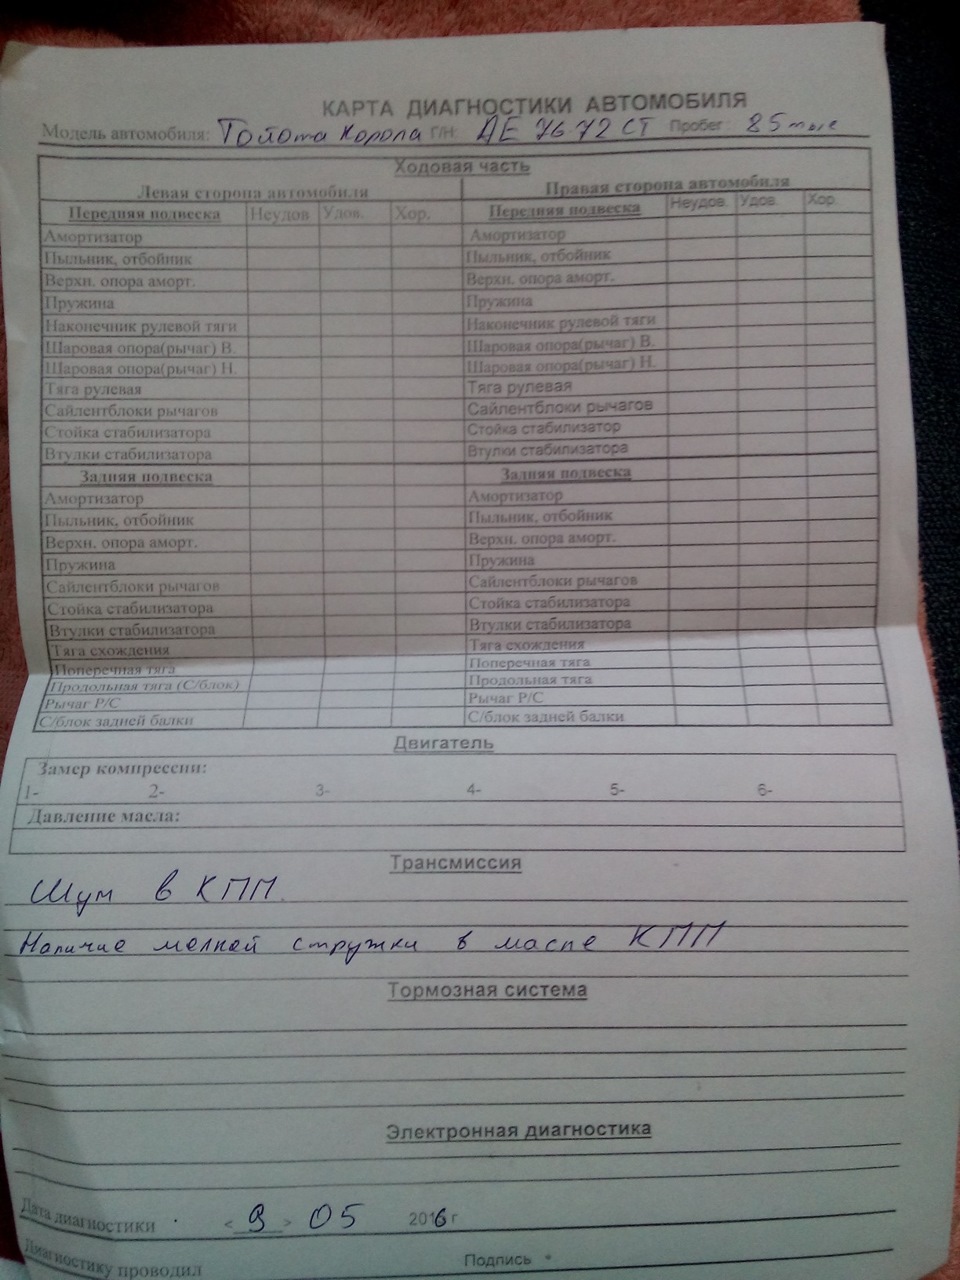 КАРТА ДИАГНОСТИКИ АВТОМОБИЛЯ
Модель автомобиля: Тойота Корола Г/Н: АЕ 7672 СТ Пробег 85 тыс
Ходовая часть
Левая сторона автомобиля Правая сторона автомобиля
Передняя подвеска Неудов Удов. Хор. Передняя подвеска Неудов. Удов. Хор.
Амортизатор Амортизатор
Пыльник, отбойник Пыльник, отбойник
Верхн. опора аморт. Верхн. опора аморт.
Пружина Пружина
Наконечник рулевой тяги Наконечник рулевой тяги
Шаровая опора(рычаг) В. Шаровая опора(рычаг) В.
Шаровая опора(рычаг) Н. Шаровая опора(рычаг) Н.
Тяга рулевая Тяга рулевая
Сайлентблоки рычагов Сайлентблоки рычагов
Стойка стабилизатора Стойка стабилизатор
Втулки стабилизатора Втулки стабилизатора
Задняя подвеска Задняя подвеска
Амортизатор Амортизатор
Пыльник, отбойник Пыльник, отбойник
Верхн. опора аморт. Верхн. опора аморт.
Пружина Пружина
Сайлентблоки рычагов Сайлентблоки рычагов
Стойка стабилизатора Стойка стабилизатора
Втулки стабилизатора Втулки стабилизатора
Тяга схождения Тяга схождения
Поперечная тяга Поперечная тяга
Продольная тяга (С/блок) Продольная тяга
Рычаг Р/С Рычаг Р/С
С/блок задней балки С/блок задней балки
Двигатель
Замер компрессии:
1- 2- 3- 4- 5- 6-
Давление масла:
Трансмиссия
Шум в КПП
Наличие мелкой стружки в масле КПП
Тормозная система
Электронная диагностика
Дата диагностики < 9 > 05 2016 г
Диагностику проводил Подпись